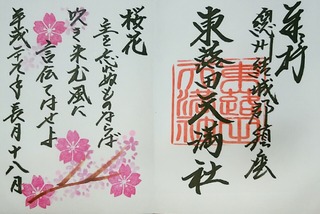 奉拝
総州結城郡鎮座
東蕗田天満社
東蕗田天満社
桜花
主を忘れぬものならば
吹き来む風に
言伝てはせよ
平成二十九年長月十八日